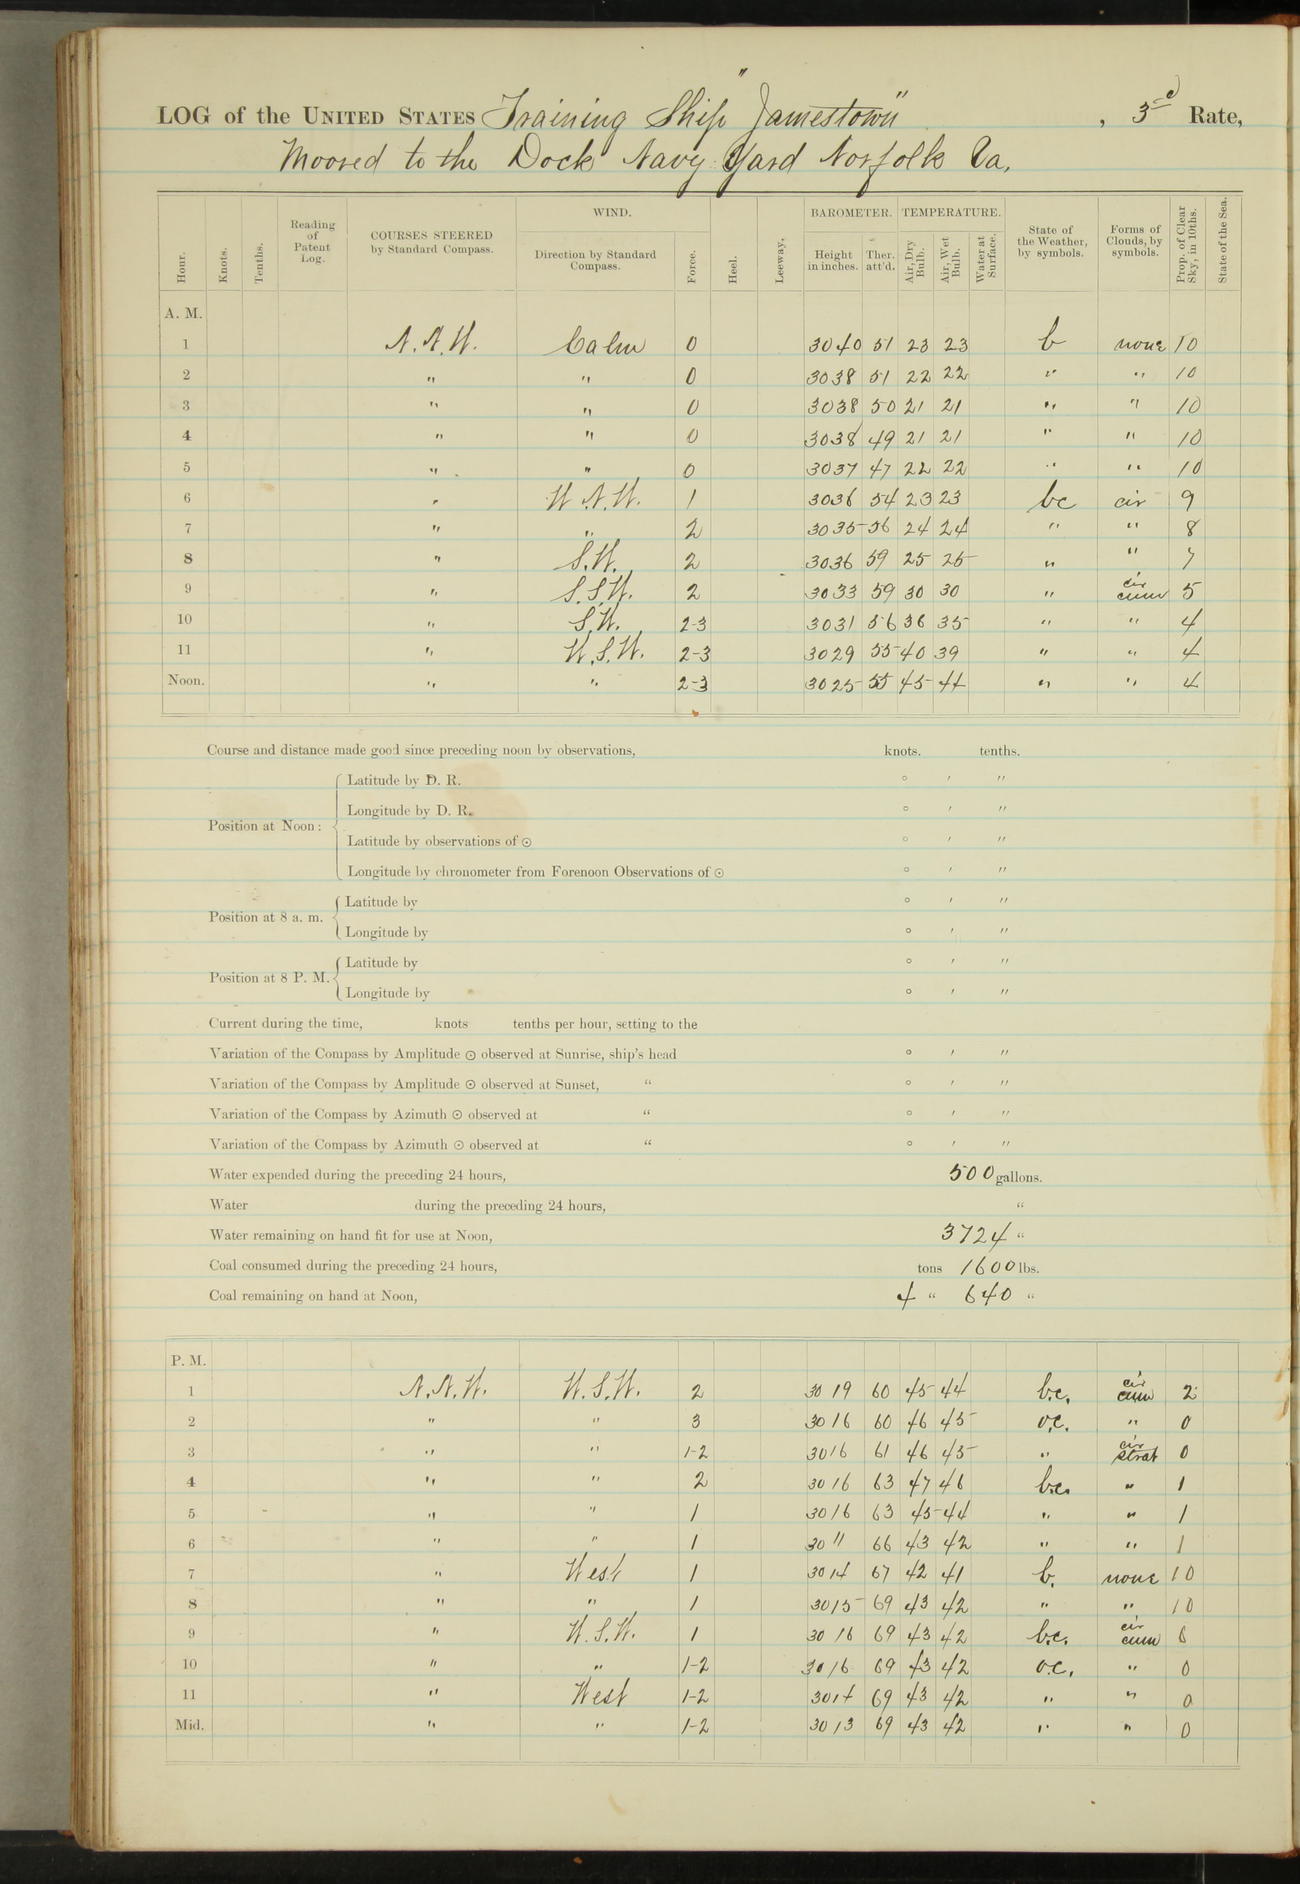 LOG of the UNITED STATES Training Ship "Jamestown", 3rd Rate,
Moored to the Dock Navy Yard Norfolk Va.
Hour. Knots. Tenths. Reading of Patent Log. COURSES STEERED by Standard Compass. WIND. Direction by Standard Compass. Force. Heel. Leeway. BAROMETER. Height in inches. Ther. att'd. TEMPERATURE. Air, Dry Bulb. Air, Wet Bulb. Water at Surface. State of the Weather, by symbols. Forms of Clouds, by symbols. Prop. of Clear Sky, in 10ths. State of the Sea.
A. M.
1 N.N.W. Calm 0 3040 51 23 23 b none 10
2 " " 0 3038 51 22 22 " " 10
3 " " 0 3038 50 21 21 " " 10
4 " " 0 3038 49 21 21 " " 10
5 " " 0 3037 47 22 22 " " 10
6 " W.N.W. 1 3036 54 23 23 bc cir 9
7 " " 2 3035 56 24 24 " " 8
8 " S.W. 2 3036 59 25 25 " " 7
9 " S.S.W. 2 3033 59 30 30 " cir cum 5
10 " S.W. 2-3 3031 56 36 35 " " 4
11 " W.S.W. 2-3 3029 55 40 39 " " 4
Noon. " " 2-3 3025 55 45 44 " " 4
Course and distance made good since preceding noon by observations, knots. tenths.
Position at Noon: Latitude by D. R. ° ′ ″
Longitude by D. R. ° ′ ″
Latitude by observations of ⊙ ° ′ ″
Longitude by chronometer from Forenoon Observations of ⊙ ° ′ ″
Position at 8 a. m. Latitude by ° ′ ″
Longitude by ° ′ ″
Position at 8 P. M. Latitude by ° ′ ″
Longitude by ° ′ ″
Current during the time, knots tenths per hour, setting to the
Variation of the Compass by Amplitude ⊙ observed at Sunrise, ship's head ° ′ ″
Variation of the Compass by Amplitude ⊙ observed at Sunset, " ° ′ ″
Variation of the Compass by Azimuth ⊙ observed at " ° ′ ″
Variation of the Compass by Azimuth ⊙ observed at " ° ′ ″
Water expended during the preceding 24 hours, 500 gallons.
Water during the preceding 24 hours, "
Water remaining on hand fit for use at Noon, 3724 "
Coal consumed during the preceding 24 hours, tons 1600 lbs.
Coal remaining on hand at Noon, 4 " 640 "
P. M.
1 N.N.W. W.S.W. 2 30 19 60 45 44 b.c. cir cum 2
2 " " 3 30 16 60 46 45 o.c. " 0
3 " " 1-2 3016 61 46 45 " cir strat 0
4 " " 2 30 16 63 47 46 b.c. " 1
5 " " 1 30 16 63 45 44 " " 1
6 " " 1 30 11 66 43 42 " " 1
7 " West 1 30 14 67 42 41 b. none 10
8 " " 1 3015 69 43 42 " " 10
9 " W.S.W. 1 30 16 69 43 42 b.c. cir cum 6
10 " " 1-2 3016 69 43 42 o.c. " 0
11 " West 1-2 3014 69 43 42 " " 0
Mid. " " 1-2 3013 69 43 42 " " 0